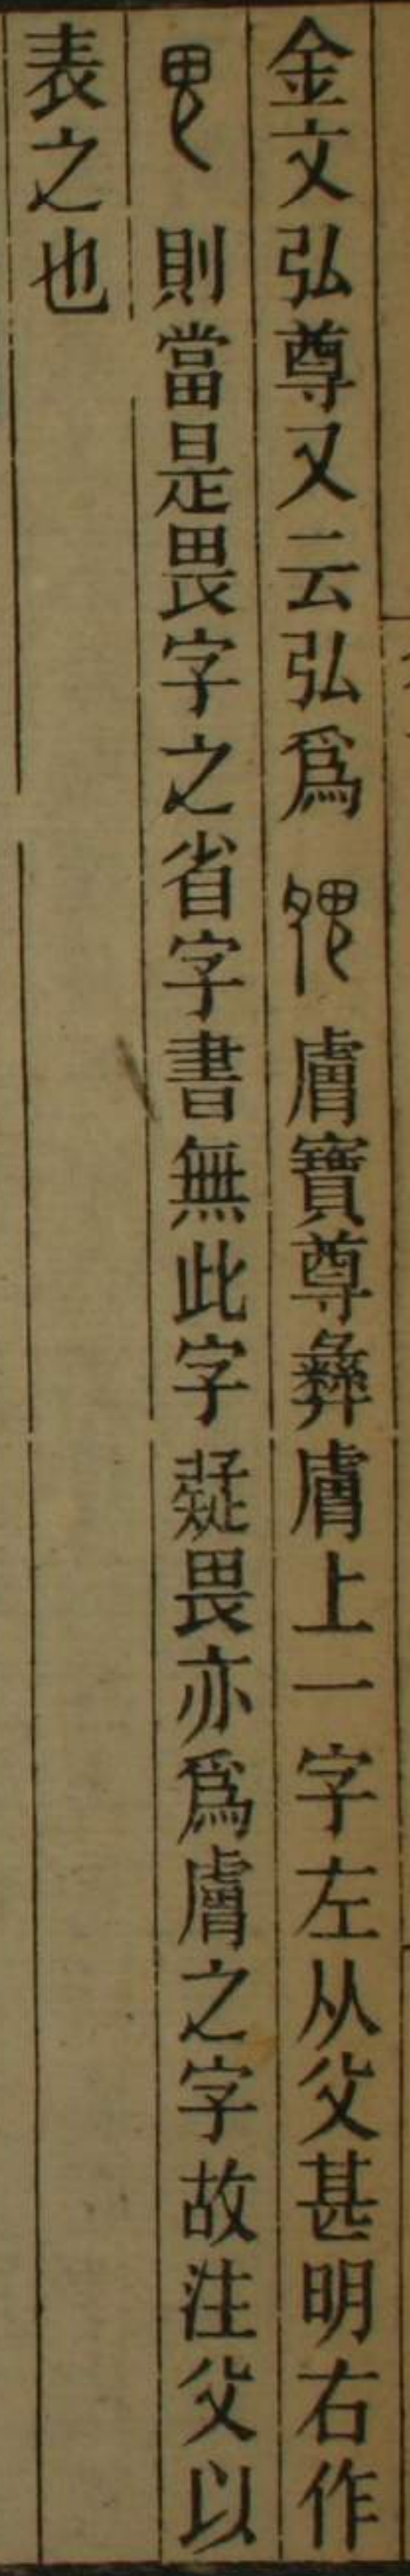 金文弘尊又云弘爲膚寶尊彝膚上一字左从父甚明右作
則當是畏字之省字書無此字疑畏亦爲膚之字故注父以
表之也